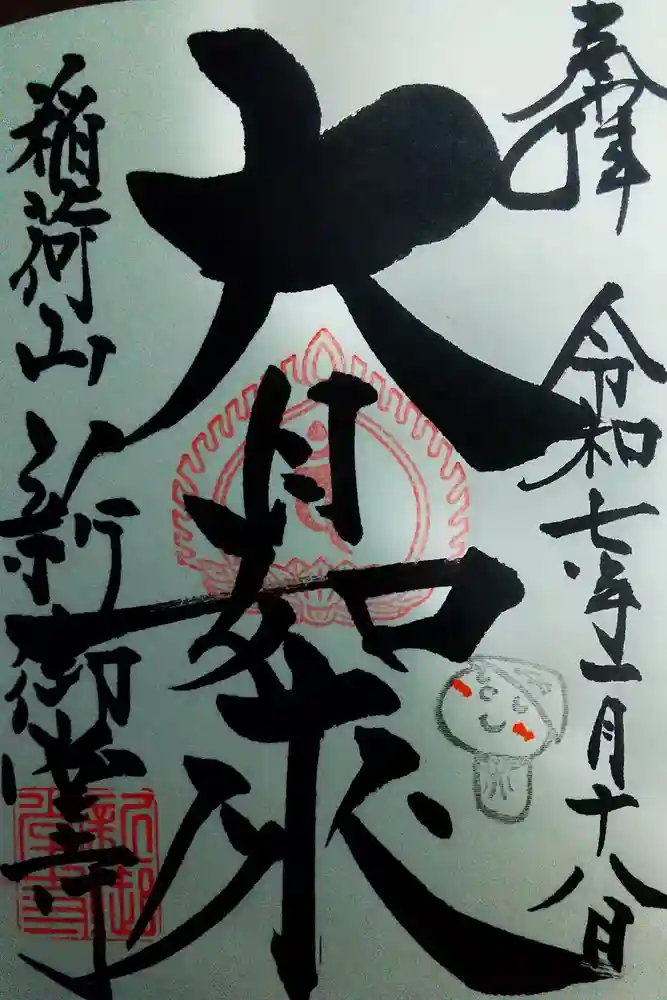 奉拝 令和七年一月十八日
大日如来
稲荷山 新御堂寺
新御堂寺